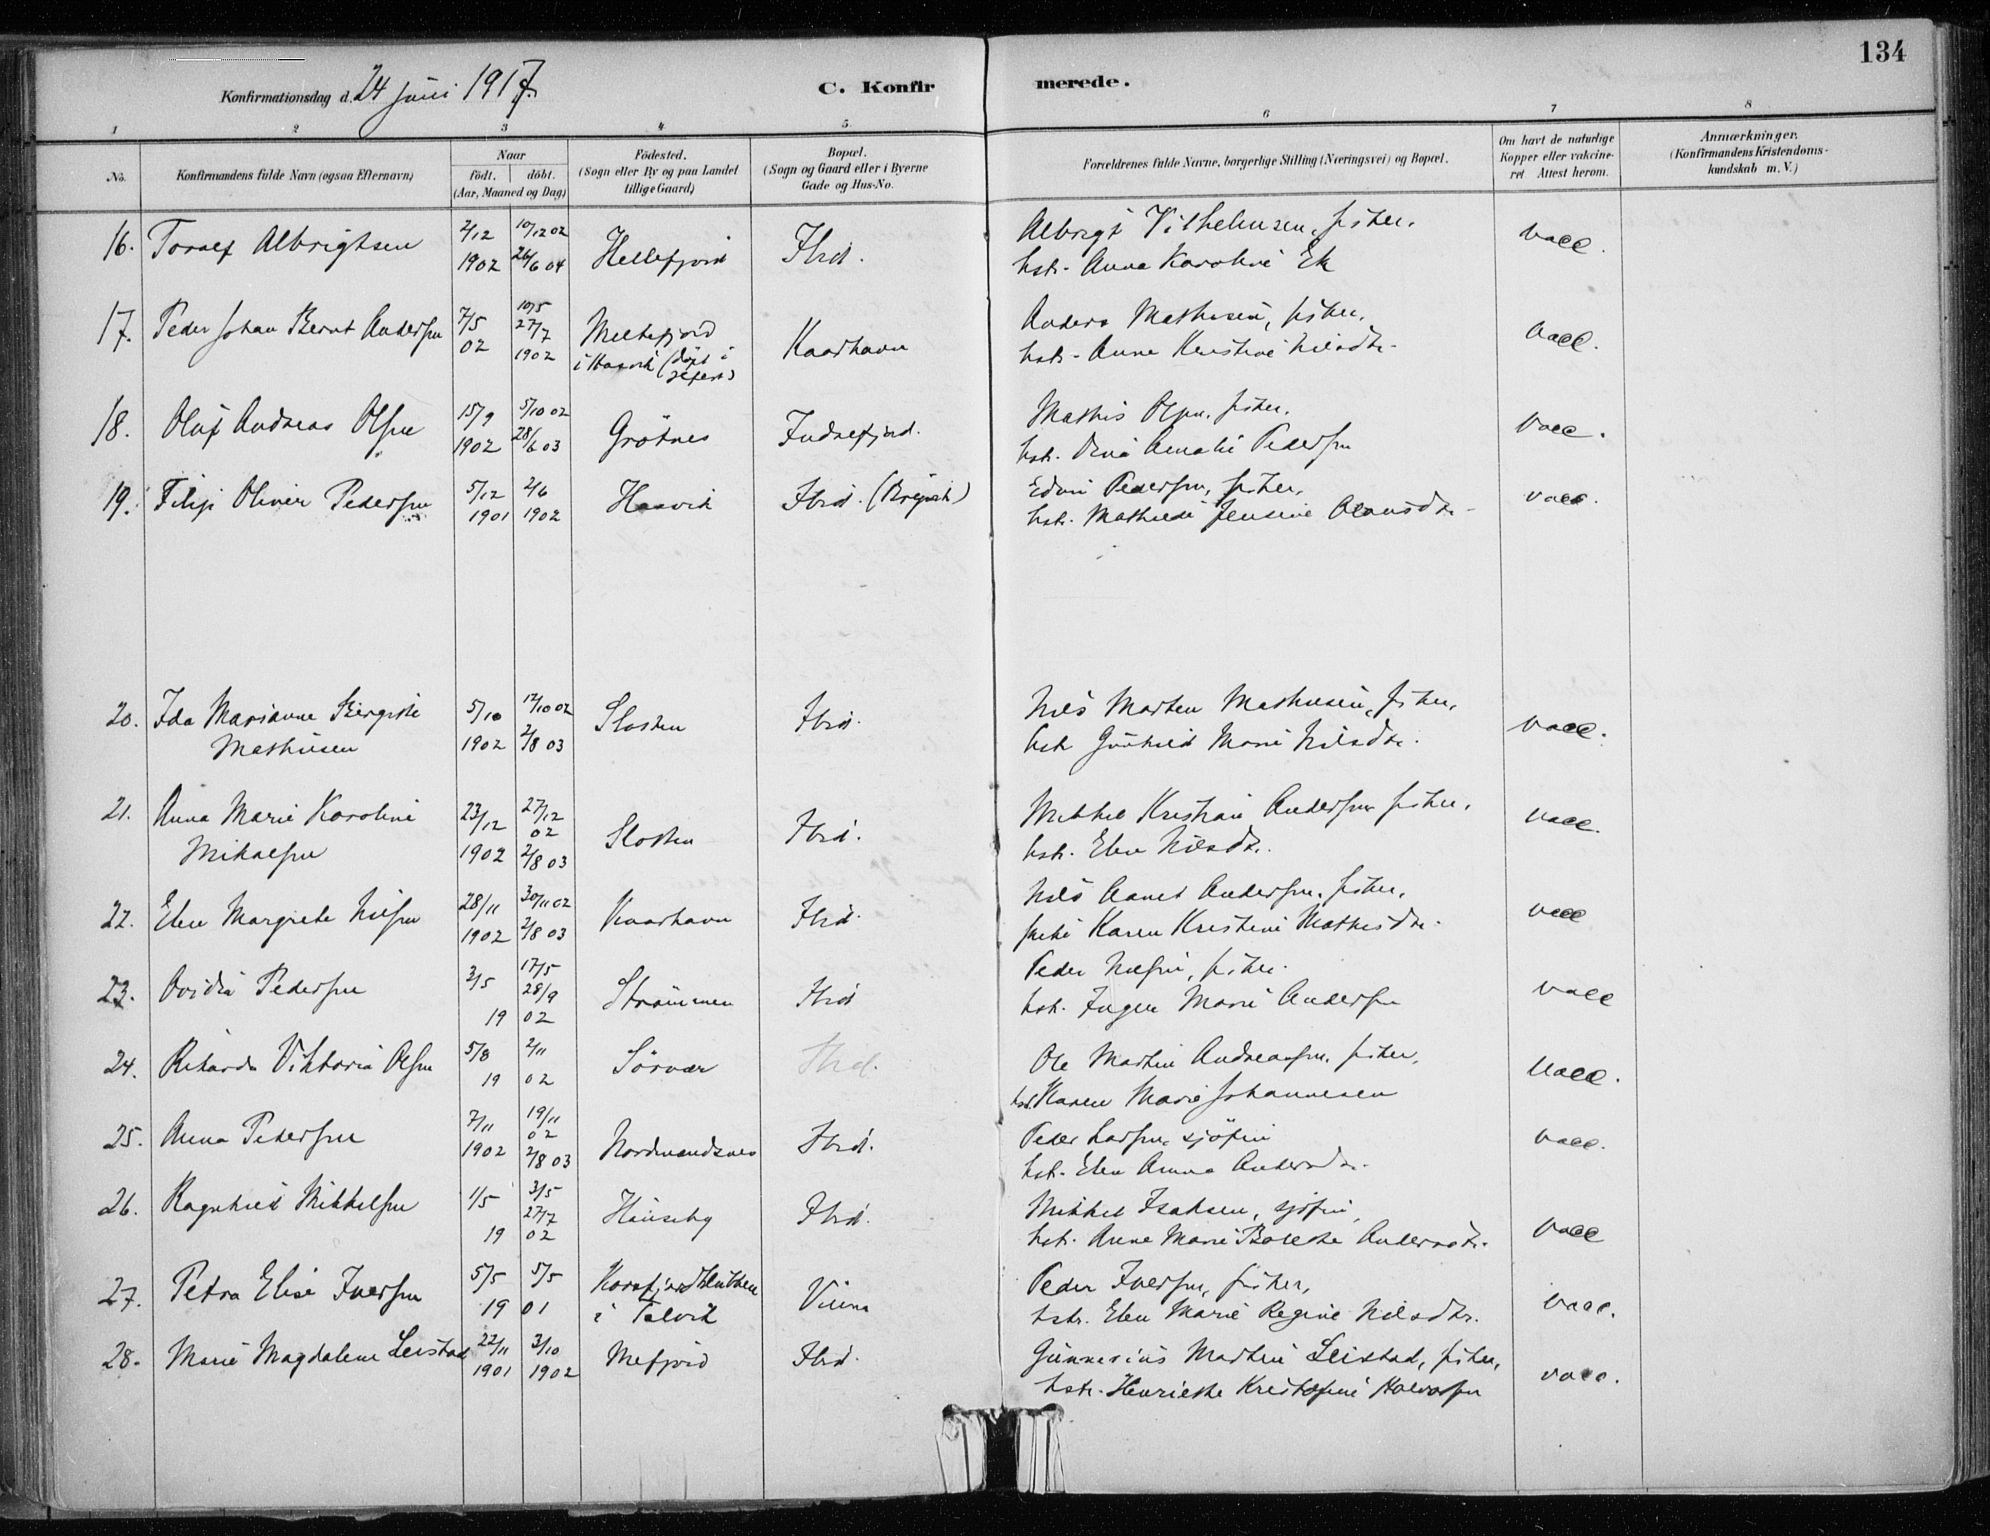 134
Konfirmationsdag d. 24 juni 1917.
C. Konfirmerede.
1 2 3 4 5. 6 7 8
No.
Konfirmandens fulde Navn (ogsaa Efternavn)
Naar
födt. döbt.
(Aar, Maaned og Dag)
Födested.
(Sogn eller By og paa Landet
tillige Gaard)
Bopæl.
(Sogn og Gaard eller i Byerne
Gade og Hus-No.
Forældrenes fulde Navne, borgerlige Stilling (Næringsvei) og Bopæl.
Om havt de naturlige
Kopper eller vakcine-
ret Attest herom.
Anmærkninger.
(Konfirmandens Kristendoms-
kundskab m. V.)
16. Toralf Albrigtsen 2/12 10/12 02 Hellefjord Ibid. Albrigt Vilhelmsen, fisker. vacc.
1902 26/6 04 hstr. Anna Karoline Ek
17. Peder Johan Bernt Andersen 7/5 10/5 Meltefjord Kaarhavn Anders Mathisen, fisker, vacc.
02 27/7 1902 i Hasvik (döpt i hstr. Anne Kristine Nilsdtr.
18. Oluf Andreas Olsen 15/9 5/10 02 Grötnes Indrefjord. Mathis Olsen, fisker. vacc.
1902 28/6 03 hstr. Amalie Pedersen
19. Filip Oliver Pedersen 5/12 2/6 Hasvik Ibid. Edvin Pedersen, fisker, vacc.
1901 1902 hstr. Mathilde Jensine
20. Ida Marianne Bergitte 5/10 12/10 02 Slotten Ibid. Nils Morten Mathisen, fisker, vacc.
Mathisen 1902 2/8 03 hstr. Gunhild Marie Nilsdtr.
21. Anna Marie Karoline 23/12 27/12 02 Slotten Ibid. Mikkel Kristian Andersen fisker, vacc.
Mikalsen 1902 2/8 03 hstr. Elen Nilsdtr.
22. Elen Margrete Nilsen 28/11 30/11 02 Kaarhavn Ibid. Nils Andersen, fisker, vacc
1902 2/8 03 Karen Kristine Mathisdtr.
23. Ovidia Pedersen 3/5 17/5 28/9 Strömmen Ibid Peder Nilsen, fisker. vacc
19 02 hstr. Inger Marie Andersen
24. Rikarda Viktoria Olsen 5/8 2/11 Sörvær Ibid. Ole Martin Andreassen, fisker, vacc.
19 02 hstr. Karen Marie Johannesen
25. Anna Pedersen 7/11 19/11 02 Nordmandsnes Ibid. Peder Larsen, sjöfin vacc.
1902 2/8 03 hstr. Elen Anna Andersdtr.
26. Ragnhild Mikkelsen 1/5 3/5 27/7 Hönseby Ibid. Mikkel Isaksen, sjöfin, vacc
19 02 hstr. Anne Marie Bolette Andersdtr.
27. Petra Elise Iversen 5/5 5/5 Korsfjord Peder Iversen, fisker, vacc.
19 01 i Talvik hstr. Elen Marie Regine Nilsdtr.
28. Marie Magdalene Leistad 22/11 3/10 Mefjord Ibid. Gunnerius Martin Leistad, fisker, vacc.
1901 1902 hstr. Henriette Kristofine Halvorsen